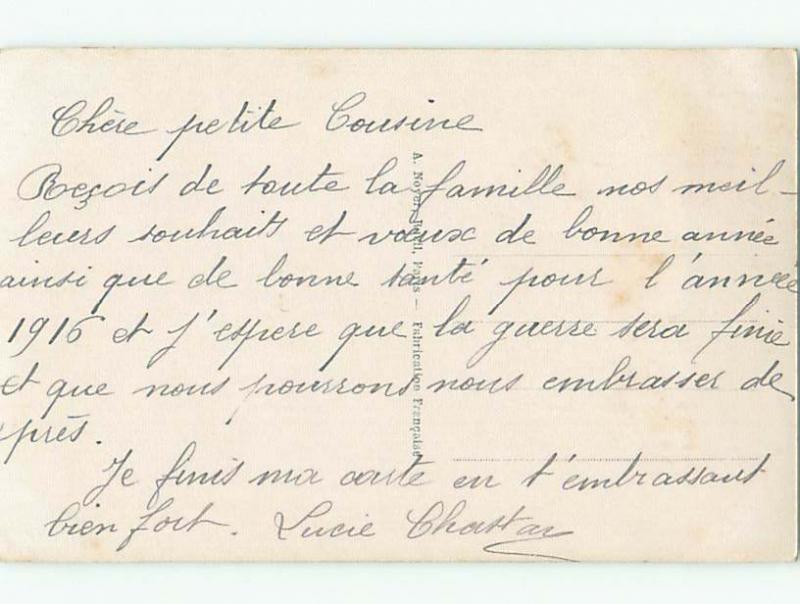 Chère petite Cousine
Reçois de toute la famille nos meil-
leurs souhaits et vœux de bonne année
ainsi que de bonne santé pour l'année
1916 et j'espere que la guerre sera finie
et que nous pourrons nous embrasser de
près.
Je finis ma carte en t'embrassant
bien fort. Lucie
A. Noyer, Paris — Fabrication Française